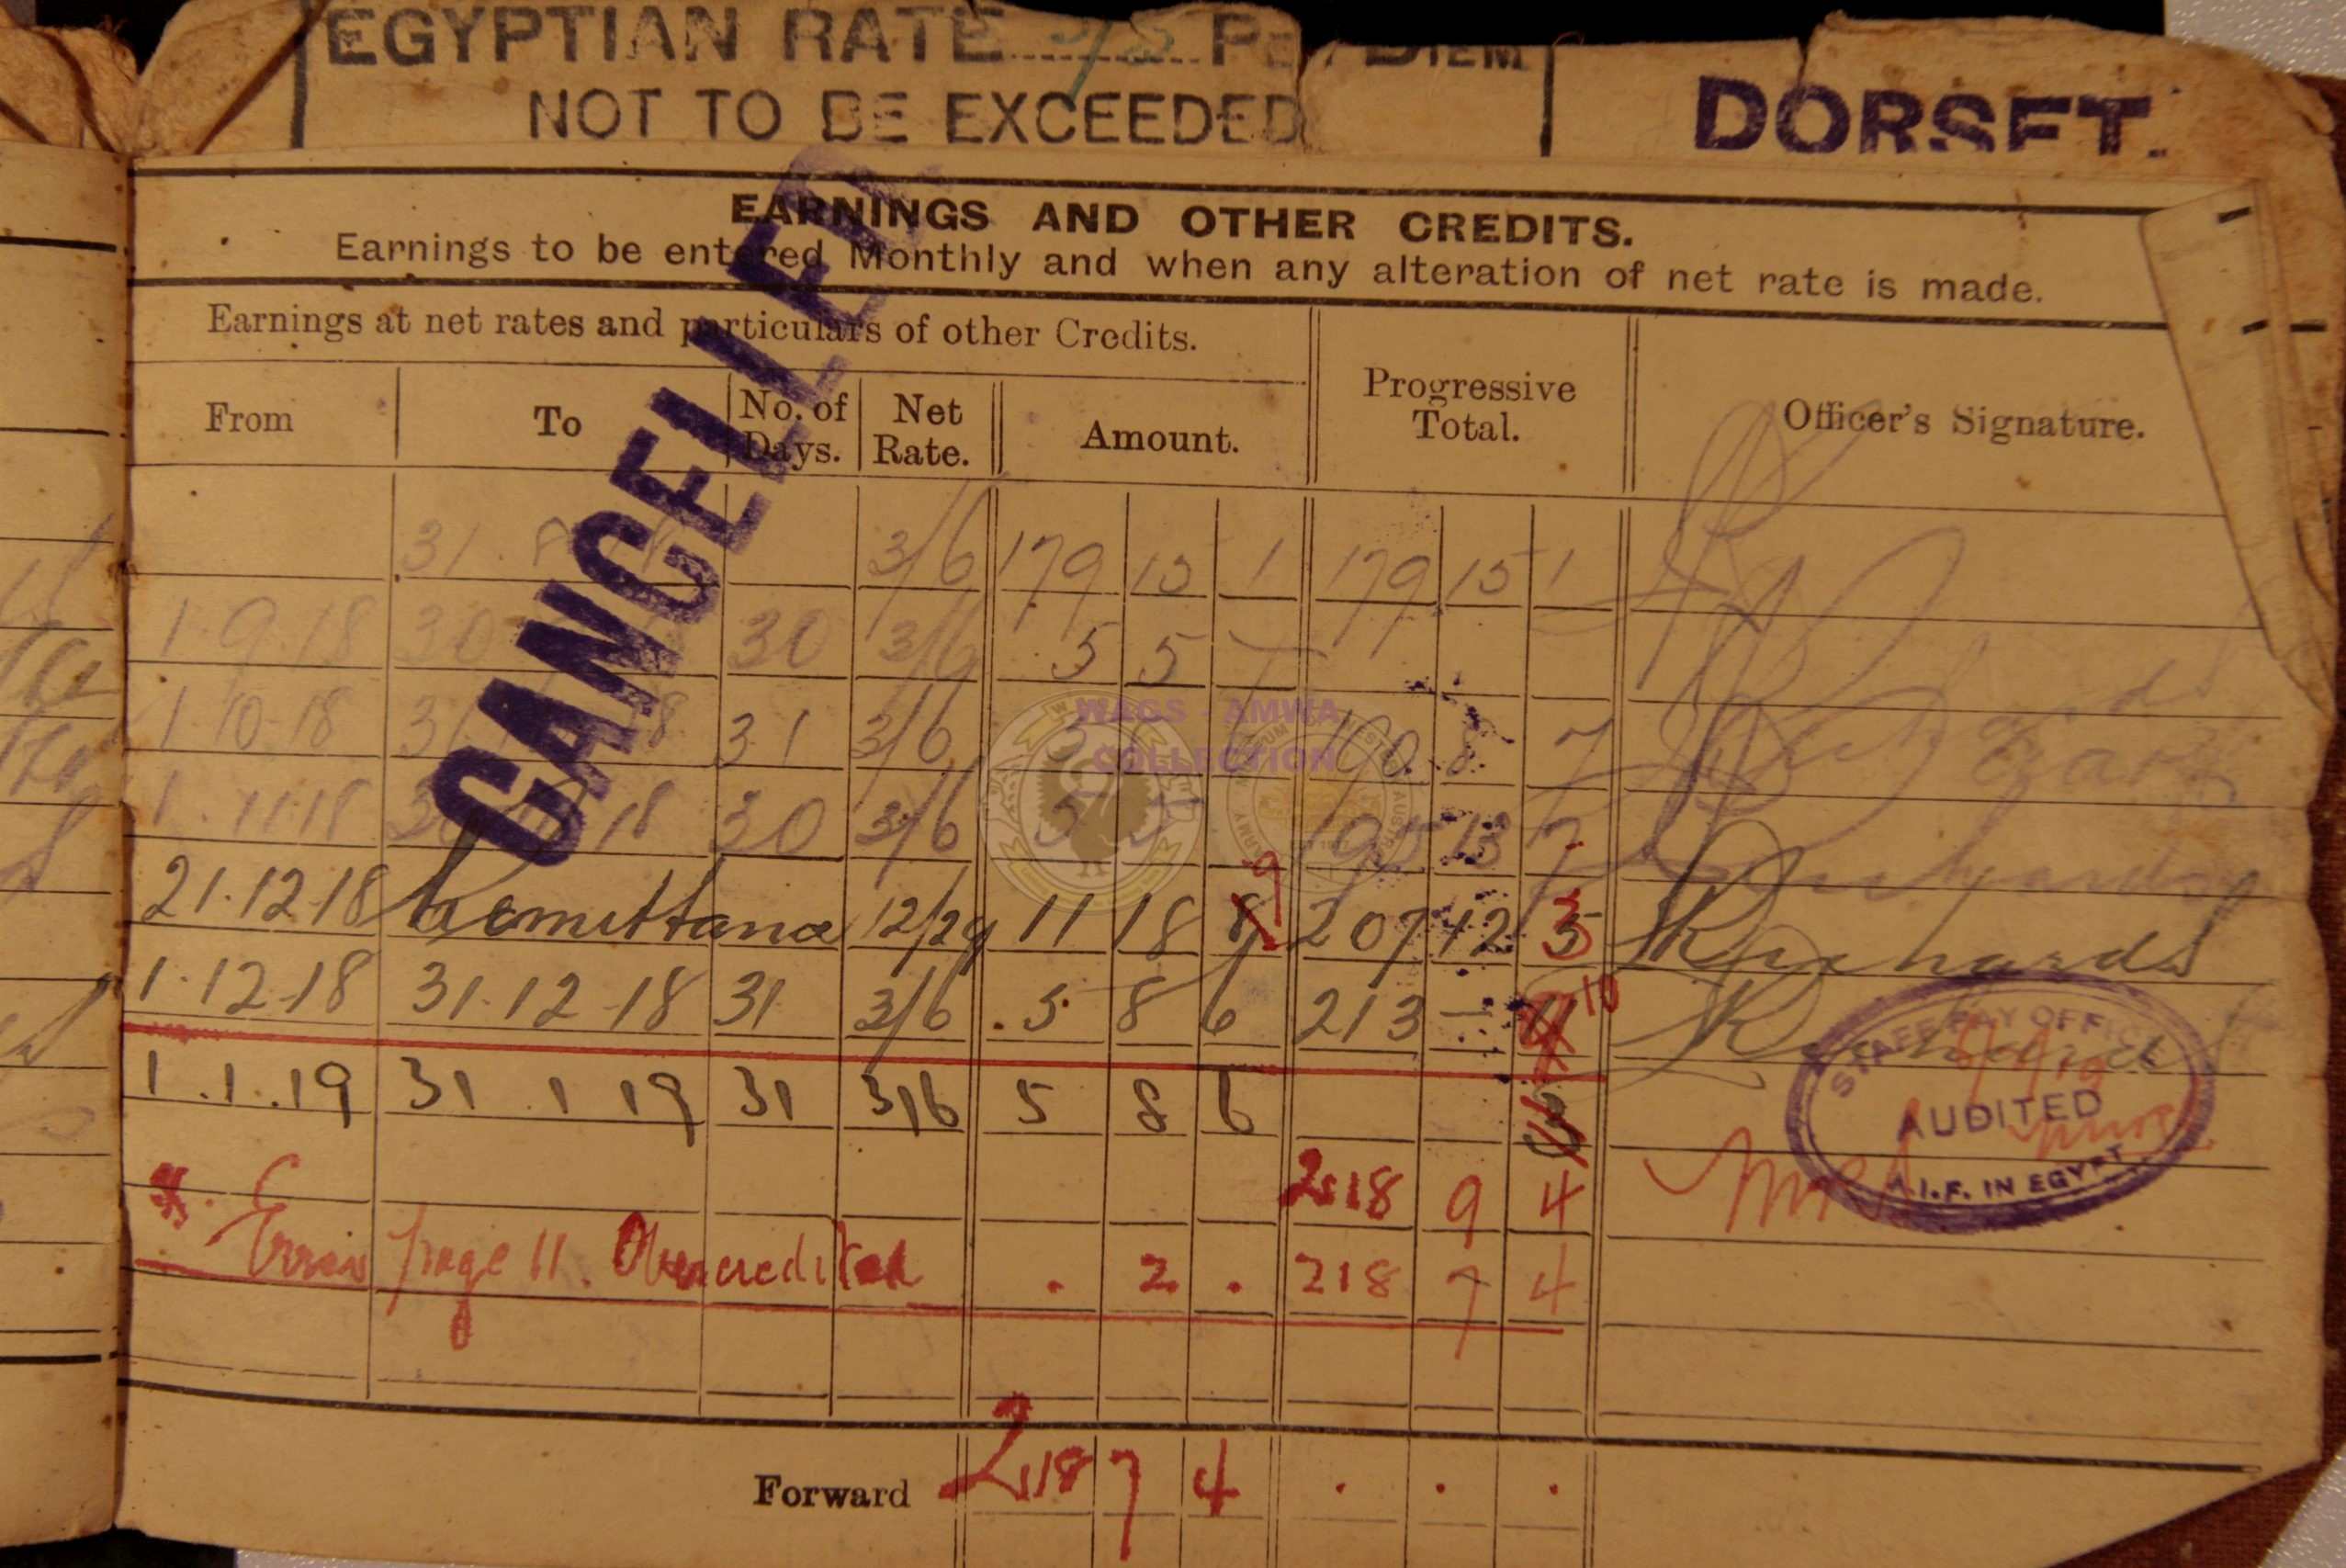 EGYPTIAN RATE 3/6 PER DIEM
NOT TO BE EXCEEDED
DORSET.
EARNINGS AND OTHER CREDITS.
Earnings to be entered Monthly and when any alteration of net rate is made.
Earnings at net rates and particulars of other Credits.
From To No. of Days. Net Rate. Amount. Progressive Total. Officer's Signature.
CANCELLED
31. 8 3/6 179 15 1 179 15 1
1.9.18 30 30 3/6 5 5 —
1.10.18 31 18 31 3/6 5 190 8 7 Richards
1.11.18 30 18 30 3/6 5 5 195 13 7 Richards
21.12.18 Remittance 12/29 11 18 8 9 207 12 Richards
1.12.18 31.12.18 31 3/6 5 8 6 213 — 10 Richards
1.1.19 31 1 19 31 3/6 5 8 6
218 9 4
Error page 11. Overcredited . 2 . 218 7 4
STAFF PAY OFFICE
AUDITED
A.I.F. IN EGYPT
WAGS - AMWA
COLLECTION
Forward 218 7 4 . . .